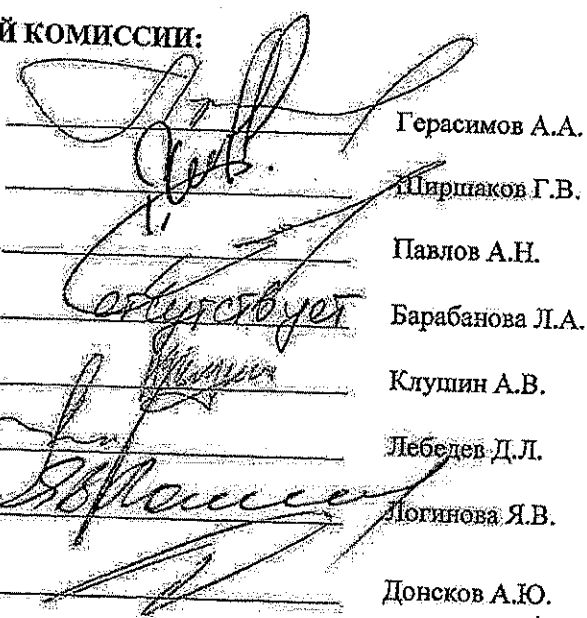 Й КОМИССИИ:
Герасимов А.А.
Ширшаков Г.В.
Павлов А.Н.
отсутствует Барабанова Л.А.
Клушин А.В.
Лебедев Д.Л.
Логинова Я.В.
Донсков А.Ю.